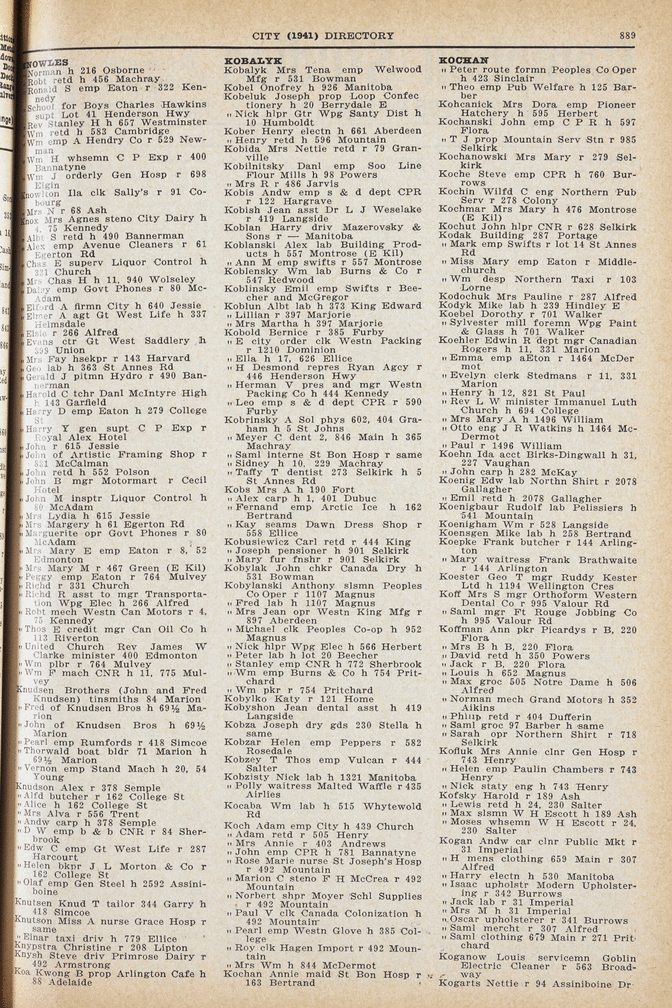 CITY (1941) DIRECTORY 889
KNOWLES
Norman h 216 Osborne
Robt retd h 456 Machray
Ronald S emp Eaton r 322 Ken-
nedy
School for Boys Charles Hawkins
supt Lot 41 Henderson Hwy
Rev Stanley H h 657 Westminster
Wm retd h 583 Cambridge
Wm emp A Hendry Co r 529 New-
man
Wm H whsemn C P Exp r 400
Bannatyne
Wm J orderly Gen Hosp r 698
Elgin
Knowlton Ila clk Sally's r 91 Co-
bourg
" Mrs N r 68 Ash
Knox Mrs Agnes steno City Dairy h
4, 75 Kennedy
" Albt S retd h 490 Bannerman
" Alex emp Avenue Cleaners r 61
Egerton Rd
" Chas E superv Liquor Control h
321 Church
" Mrs Chas H h 11, 940 Wolseley
" Daisy emp Govt Phones r 80 Mc-
Adam
" Elford A firmn City h 640 Jessie
" Elmer A agt Gt West Life h 337
Helmsdale
" Elsie r 266 Alfred
" Evans ctr Gt West Saddlery h
599 Union
" Mrs Fay hsekpr r 143 Harvard
" Geo lab h 363 St Annes Rd
" Gerald J pitmn Hydro r 490 Ban-
nerman
" Harold C tchr Danl McIntyre High
h 143 Garfield
" Harry D emp Eaton h 279 College
St
" Harry Y gen supt C P Exp r
Royal Alex Hotel
" John r 615 Jessie
" John of Artistic Framing Shop r
321 McCalman
" John retd h 552 Polson
" John B mgr Motormart r Cecil
Hotel
" John M insptr Liquor Control h
80 McAdam
" Mrs Lydia h 615 Jessie
" Mrs Margery h 61 Egerton Rd
" Marguerite opr Govt Phones r 80
McAdam
" Mrs Mary E emp Eaton r 8, 52
Edmonton
" Mrs Mary M r 467 Green (E Kil)
" Peggy emp Eaton r 764 Mulvey
" Richd r 331 Church
" Richd R asst to mgr Transporta-
tion Wpg Elec h 266 Alfred
" Robt mech Westn Can Motors r 4,
75 Kennedy
" Thos E credit mgr Can Oil Co h
113 Riverton
" United Church Rev James W
Clarke minister 400 Edmonton
" Wm plbr r 764 Mulvey
" Wm F mach CNR h 11, 775 Mul-
vey
Knudsen Brothers (John and Fred
Knudsen) tinsmiths 84 Marion
" Fred of Knudsen Bros h 69½ Ma-
rion
" John of Knudsen Bros h 69½
Marion
" Pearl emp Rumfords r 418 Simcoe
" Thorwald boat bldr 71 Marion h
69½ Marion
" Vernon emp Stand Mach h 20, 54
Young
Knudson Alex r 378 Semple
" Alfd butcher r 162 College St
" Alice h 162 College St
" Mrs Alva r 556 Trent
" Andw carp h 378 Semple
" D W emp b & b CNR r 84 Sher-
brook
" Edw C emp Gt West Life r 287
Harcourt
" Helen bkpr J L Morton & Co r
162 College St
" Olaf emp Gen Steel h 2592 Assini-
boine
Knutsen Knud T tailor 344 Garry h
418 Simcoe
Knutson Miss A nurse Grace Hosp r
same
" Einar taxi driv h 779 Ellice
Knypstra Christine r 208 Lipton
Knysh Steve driv Primrose Dairy r
492 Armstrong
Koa Kwong B prop Arlington Cafe h
88 Adelaide
KOBALYK
Kobalyk Mrs Tena emp Welwood
Mfg r 531 Bowman
Kobel Onofrey h 926 Manitoba
Kobeluk Joseph prop Loop Confec
tionery h 20 Berrydale E
" Nick hlpr Gtr Wpg Santy Dist h
10 Humboldt
Kober Henry electn h 661 Aberdeen
" Henry retd h 596 Mountain
Kobida Mrs Nettie retd r 79 Gran-
ville
Kobilnitsky Danl emp Soo Line
Flour Mills h 98 Powers
" Mrs R r 486 Jarvis
Kobis Andw emp s & d dept CPR
r 122 Hargrave
Kobish Jean asst Dr L J Weselake
r 419 Langside
Koblan Harry driv Mazerovsky &
Sons r — Manitoba
Koblanski Alex lab Building Prod-
ucts h 557 Montrose (E Kil)
" Ann M emp swifts r 557 Montrose
Koblensky Wm lab Burns & Co r
547 Redwood
Koblinsky Emil emp Swifts r Bee-
cher and McGregor
Koblun Albt lab h 373 King Edward
" Lillian r 397 Marjorie
" Mrs Martha h 397 Marjorie
Kobold Bernice r 385 Furby
" E city order clk Westn Packing
r 1210 Dominion
" Ella h 17, 626 Ellice
" H Desmond repres Ryan Agcy r
446 Henderson Hwy
" Herman V pres and mgr Westn
Packing Co h 444 Kennedy
" Leo emp s & d dept CPR r 590
Furby
Kobrinsky A Sol phys 602, 404 Gra-
ham h 5 St Johns
" Meyer C dent 2, 846 Main h 365
Machray
" Saml interne St Bon Hosp r same
" Sidney h 10, 229 Machray
" Taffy T dentist 273 Selkirk h 5
St Annes Rd
Kobs Mrs A h 190 Fort
" Alex carp h 1, 401 Dubuc
" Fernand emp Arctic Ice h 162
Bertrand
" Kay seams Dawn Dress Shop r
558 Ellice
Kobusiewicz Carl retd r 444 King
" Joseph pensioner h 901 Selkirk
" Mary fur fnshr r 901 Selkirk
Kobylak John chkr Canada Dry h
531 Bowman
Kobylanski Anthony slsmn Peoples
Co Oper r 1107 Magnus
" Fred lab h 1107 Magnus
" Mrs Jean opr Westn King Mfg r
897 Aberdeen
" Michael clk Peoples Co-op h 952
Magnus
" Nick hlpr Wpg Elec h 566 Herbert
" Peter lab h lot 20 Beecher
" Stanley emp CNR h 772 Sherbrook
" Wm emp Burns & Co h 754 Prit-
chard
" Wm pkr r 754 Pritchard
Kobylko Katy r 121 Home
Kobyshon Jean dental asst h 419
Langside
Kobza Joseph dry gds 230 Stella h
same
Kobzar Helen emp Peppers r 582
Rosedale
Kobzey T Thos emp Vulcan r 444
Salter
Kobzisty Nick lab h 1321 Manitoba
" Polly waitress Malted Waffle r 435
Airlies
Kocaba Wm lab h 515 Whytewold
Rd
Koch Adam emp City h 439 Church
" Adam retd r 505 Henry
" Mrs Annie r 403 Andrews
" John emp CPR h 781 Bannatyne
" Rose Marie nurse St Joseph's Hosp
r 492 Mountain
" Marion C steno F H McCrea r 492
Mountain
" Norbert shpr Moyer Schl Supplies
r 492 Mountain
" Paul V clk Canada Colonization h
492 Mountain
" Pearl emp Westn Glove h 385 Col-
lege
" Roy clk Hagen Import r 492 Moun-
tain
" Mrs Wm h 844 McDermot
Kochan Annie maid St Bon Hosp r
163 Bertrand
KOCHAN
" Peter route formn Peoples Co Oper
h 423 Sinclair
" Theo emp Pub Welfare h 125 Bar-
ber
Kohcanick Mrs Dora emp Pioneer
Hatchery h 595 Herbert
Kochanski John emp C P R h 597
Flora
" T J prop Mountain Serv Stn r 985
Selkirk
Kochanowski Mrs Mary r 279 Sel-
kirk
Koche Steve emp CPR h 760 Bur-
rows
Kochin Wilfd C eng Northern Pub
Serv r 278 Colony
Kochmar Mrs Mary h 476 Montrose
(E Kil)
Kochut John hlpr CNR r 628 Selkirk
Kodak Building 287 Portage
" Mark emp Swifts r lot 14 St Annes
Rd
" Miss Mary emp Eaton r Middle-
church
" Wm desp Northern Taxi r 103
Lorne
Kodochuk Mrs Pauline r 287 Alfred
Kodyk Mike lab h 239 Hindley E
Koebel Dorothy r 701 Walker
" Sylvester mill foremn Wpg Paint
& Glass h 701 Walker
Koehler Edwin R dept mgr Canadian
Rogers h 11, 331 Marion
" Emma emp aEton r 1464 McDer
mot
" Evelyn clerk Stedmans r 11, 331
Marion
" Henry h 12, 821 St Paul
" Rev L W minister Immanuel Luth
Church h 694 College
" Mrs Mary A h 1496 William
" Otto eng J R Watkins h 1464 Mc-
Dermot
" Paul r 1496 William
Koehn Ida acct Birks-Dingwall h 31,
227 Vaughan
" John carp h 282 McKay
Koenig Edw lab Northn Shirt r 2078
Gallagher
" Emil retd h 2078 Gallagher
Koenigbaur Rudolf lab Pelissiers h
541 Mountain
Koenigham Wm r 528 Langside
Koensgen Mike lab h 258 Bertrand
Koepke Frank butcher r 144 Arling-
ton
" Mary waitress Frank Brathwaite
r 144 Arlington
Koester Geo T mgr Ruddy Kester
Ltd h 1194 Wellington Cres
Koff Mrs S mgr Orthoform Western
Dental Co r 995 Valour Rd
" Saml mgr Ft Rouge Jobbing Co
h 995 Valour Rd
Koffman Ann pkr Picardys r B, 220
Flora
" Mrs B h B, 220 Flora
" David retd h 350 Powers
" Jack r B, 220 Flora
" Louis h 652 Magnus
" Max groc 505 Notre Dame h 506
Alfred
" Norman mech Grand Motors h 352
Aikins
" Philip retd r 404 Dufferin
" Saml groc 97 Barber h same
" Sarah opr Northern Shirt r 718
Selkirk
Kofluk Mrs Annie clnr Gen Hosp r
743 Henry
" Helen emp Paulin Chambers r 743
Henry
" Nick staty eng h 743 Henry
Kofsky Harold r 189 Ash
" Lewis retd h 24, 230 Salter
" Max slsmn W H Escott h 189 Ash
" Moses whsemn W H Escott r 24,
230 Salter
Kogan Andw car clnr Public Mkt r
31 Imperial
" H mens clothing 659 Main r 307
Alfred
" Harry electn h 530 Manitoba
" Isaac upholstr Modern Upholster-
ing r 342 Burrows
" Jack lab r 31 Imperial
" Mrs M h 31 Imperial
" Oscar upholsterer r 341 Burrows
" Saml mercht r 307 Alfred
" Saml clothing 679 Main r 271 Prit-
chard
Koganow Louis servicemn Goblin
Electric Cleaner r 563 Broad-
way
Kogarts Nettie r 94 Assiniboine Dr